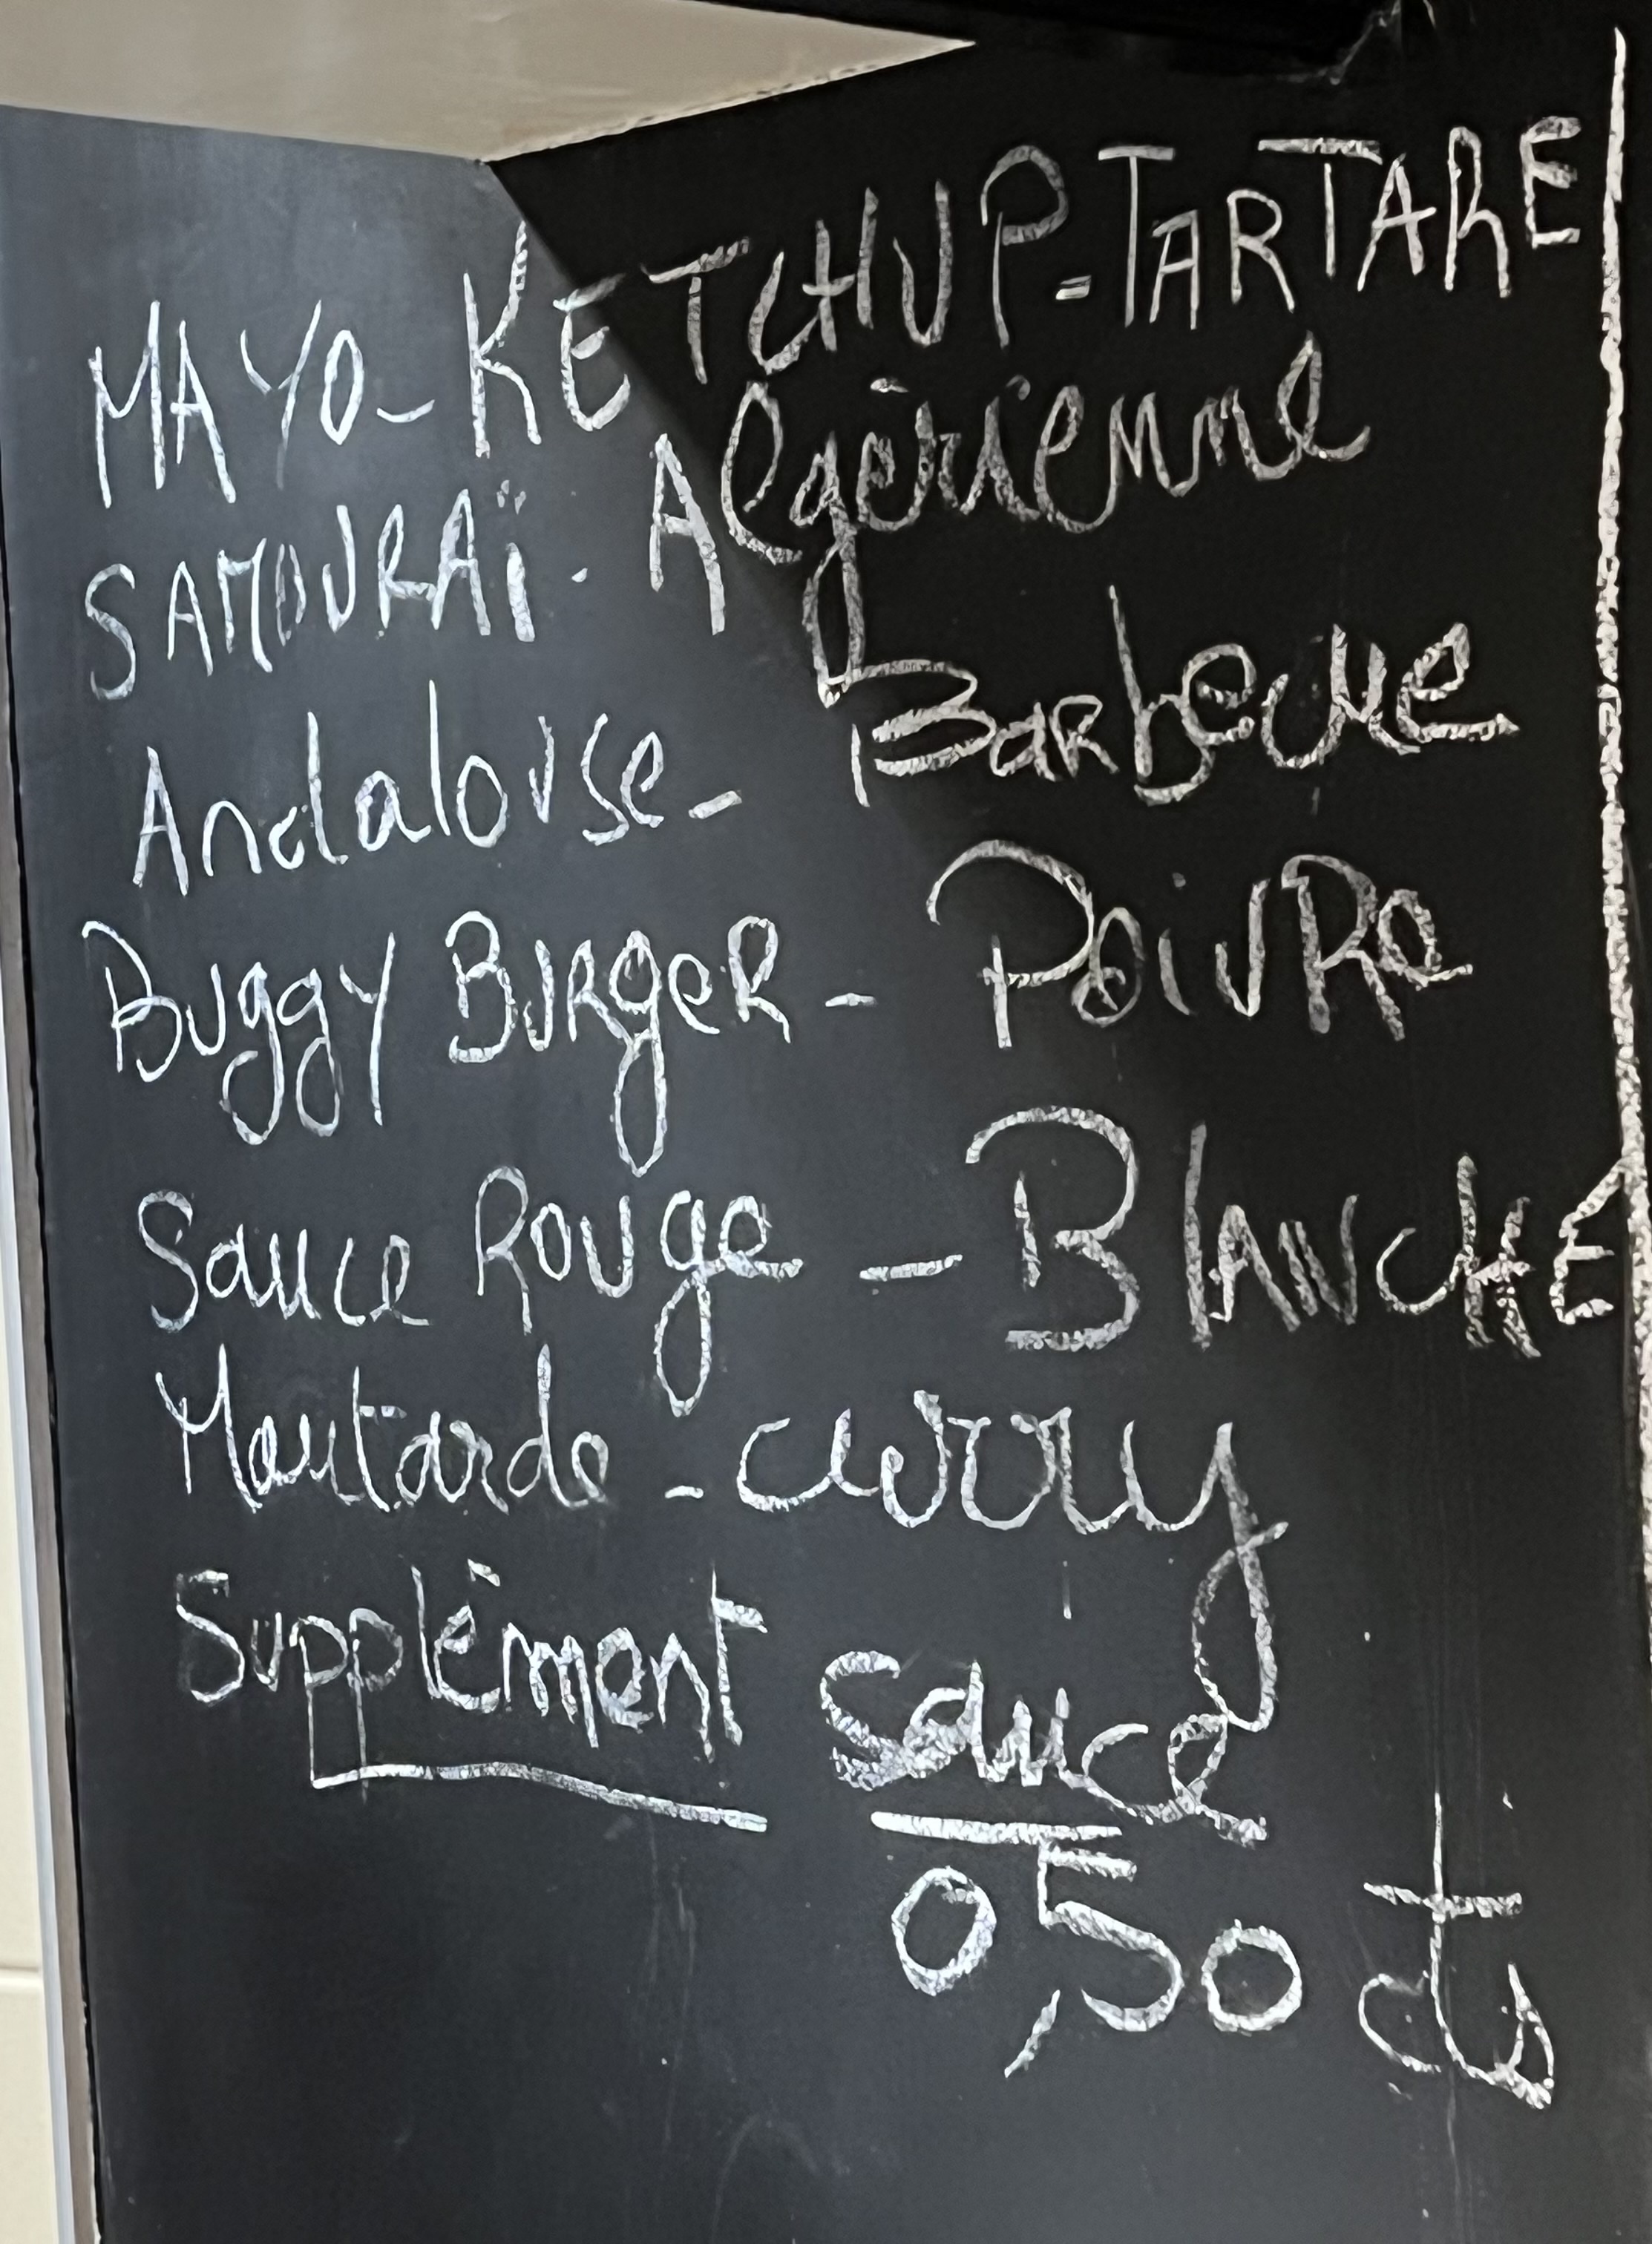 MAYO - KETCHUP - TARTARE
SAMOURAÏ - Algérienne
Andalouse - Barbecue
Buggy Burger - Poivre
Sauce Rouge - BlANCHE
Moutarde - curry
Supplément sauce
0,50 cts